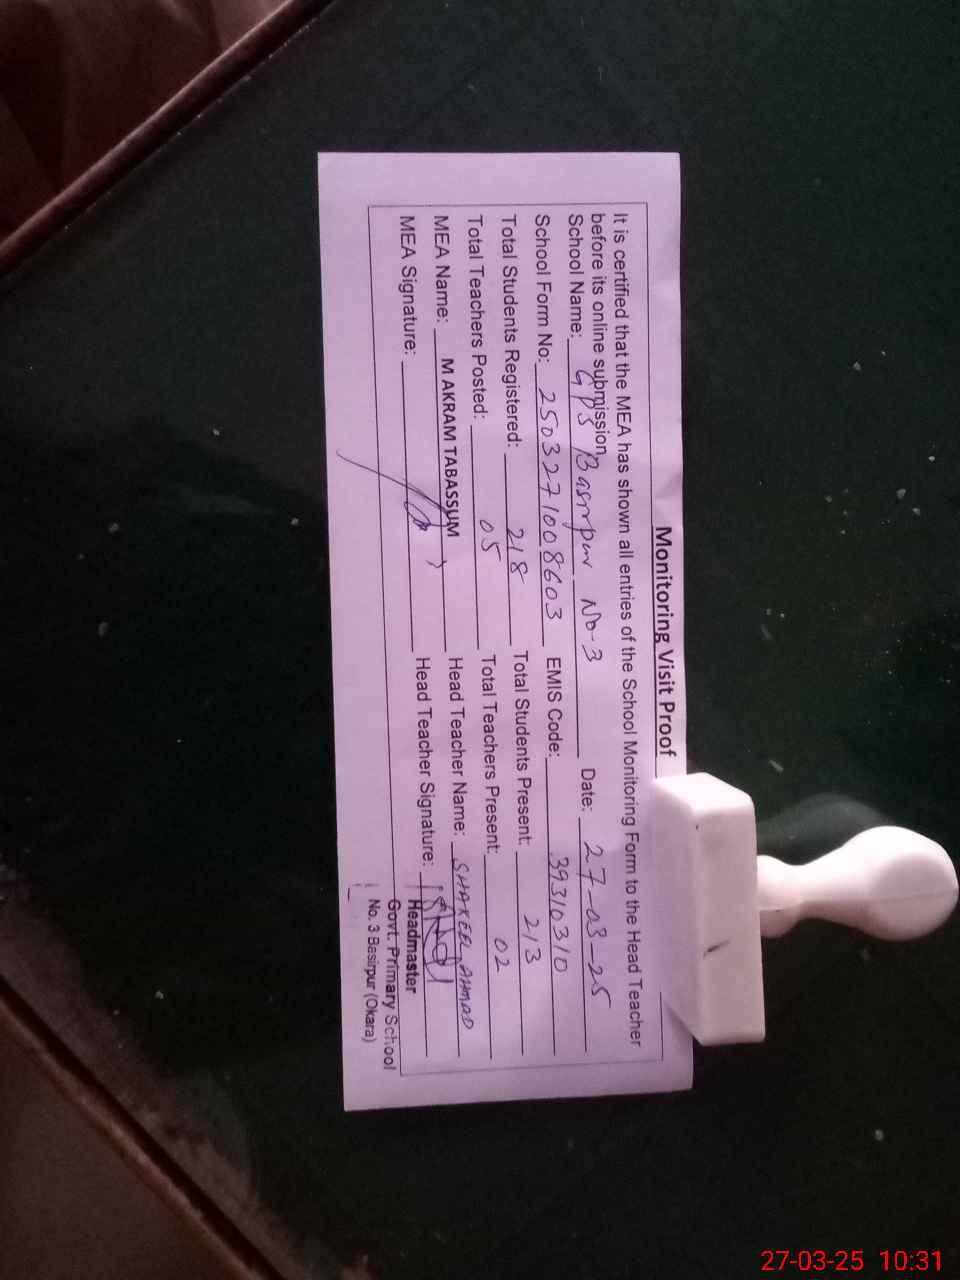 Monitoring Visit Proof
It is certified that the MEA has shown all entries of the School Monitoring Form to the Head Teacher
before its online submission.
School Name: GPS Basirpur No-3 Date: 27-03-25
School Form No: 2503271008603 EMIS Code: 39310310
Total Students Registered: 218 Total Students Present: 213
Total Teachers Posted: 05 Total Teachers Present: 02
MEA Name: M AKRAM TABASSUM Head Teacher Name: SHAKEEL AHMAD
MEA Signature: Head Teacher Signature:
Headmaster
Govt. Primary School
No. 3 Basirpur (Okara)
27-03-25 10:31